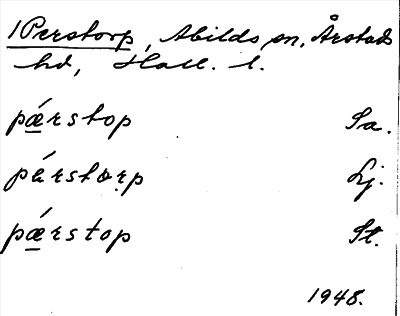 1 Perstorp, Abilds sn, Årstads
hd, Hall. l.
pǽ̱rstop Sa.
pérstɷr̥p Lj.
pǽ̱rstop St.
1948.